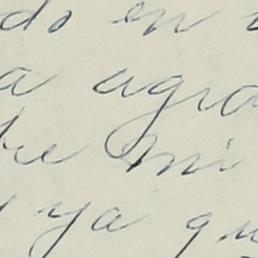 do en
a agra
bre mi
y ya qu